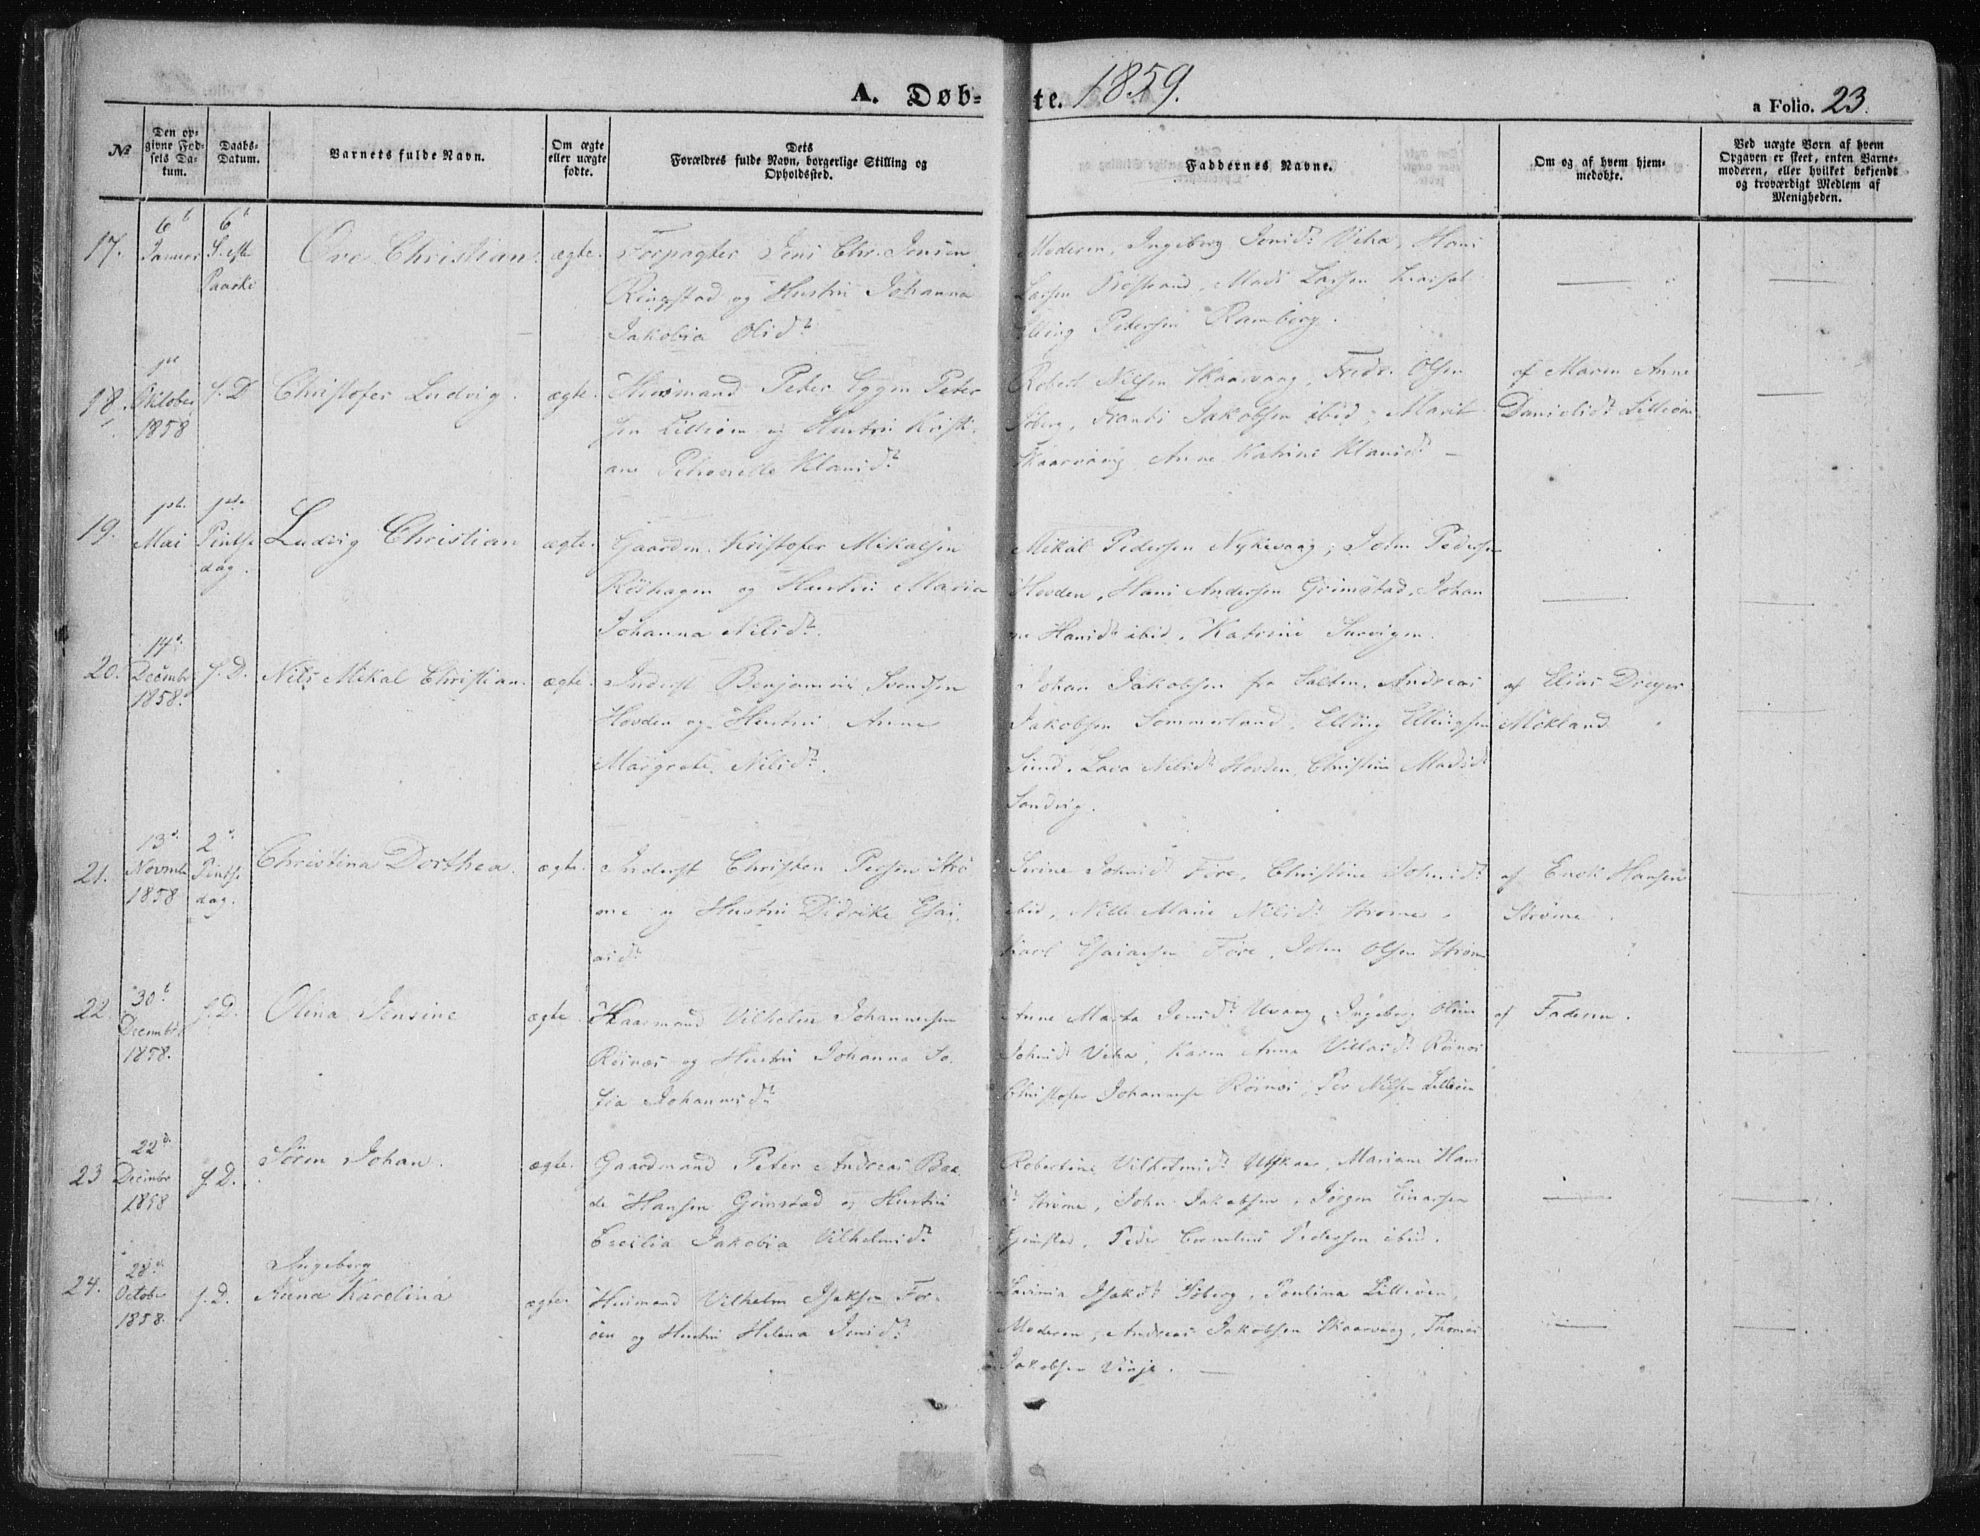 A. Døb-
te. 1859.
a Folio. 23.
No
Den op-
givne Fød-
sels Da-
tum.
Daabs-
Datum.
Barnets fulde Navn.
Om ægte
eller uægte
fødte.
Dets
Forældres fulde Navn, borgerlige Stilling og
Opholdssted.
Faddernes Navne.
Om og af hvem hjem-
medøbte.
Ved uægte Børn af hvem
Opgaven er skeet, enten Barne-
moderen, eller hvilket bekjendt
og troværdigt Medlem af
Menigheden.
17.
6t
Januar
6t
S. efter
Paaske
Ove Christian
ægte.
Forpagter Jens Chr. Jensen
Ringstad og Hustru Johanna
Jakobia Olsdt
Moderen, Ingeborg Jensdt Vika, Hans
Larsen, Mads Larsen
Elling Pedersen Ramberg.
18.
1ste
Oktober
1858
f. D
Christofer Ludvig.
ægte.
Huusmand Peter Eggen Peter
sen Lilleøen og Hustru Kristi-
ane Petronelle Klausdt
Robert Nilsen Skaarvaag, Fredr. Olsen
Søberg, Frants Jakobsen ibid, Marit
Skaarvaag, Anne Katrine Klausdt
af Maren Anne
Danielsdt Lilleøen
19.
1ste
Mai
1ste
Pintse
dag.
Ludvig Christian
ægte.
Gaardm. Kristofer Mikalsen
Røshagen og Hustru Maria
Johanna Nilsdt.
Mikal Pedersen Nykvaag, John Pedersen
Hovden, Hans Andersen Grimstad, Johan
ne Hansdt ibid, Katrine
20.
14d.
Decembr
1858.
f. D.
Nils Mikal Christian.
ægte.
Inderst Benjamin Svendsen
Hovden og Hustru Anne
Margrete Nilsdt.
Johan Jakobsen fra Salten, Andreas
Jakobsen Sommerland, Elling Ellingsen
Sund, Lava Nilsdt Hovden, Christine Madsdt
Sandvig.
af Elias Dreyer
Møkland
21.
13d.
Novmbr
1858
2d.
Pintse
dag.
Christina Dorthea.
ægte.
Inderst Christen Persen Strø
me og Hustru Didrike Esai-
asdt
Serine Johnsdt Føre, Christine Johnsdt
ibid, Nille Marie Nilsdt Strøme,
Karl Esaiassen Føre, John Olsen Strøme
af Enok Hansen
Strøme.
22.
30t
Decembr
1858.
f. D.
Olina Jensine
ægte.
Huusmand Vilhelm Johannessen
Reinæs og Hustru Johanna So-
fia Johannesdt
Anne Marta Jensdt Uvaag, Ingeborg Oline
Johnsdt Vika, Karen Anna Villasdt Reinæs
Christofer Johannesen Reinæs, Per Nilsen Lilleøen
af Faderen.
23
22d.
Decembr
1858
f. D.
Sören Johan.
ægte.
Gaardmand Peter Andreas Baa-
de Hansen Grimstad og Hustru
Cecilia Jakobia Vilhelmsdt
Robertine Vilhelmsdt Utskaar, Mariane Hans
dt Strøme, John Jakobsen, Jørgen Einarsen
Grimstad, Peder Cornelius Pedersen ibid.
24.
28d.
Octobr
1858.
f. D.
Ingeborg
Anna Karolina
ægte.
Huusmand Vilhelm Isaksen For-
øen og Hustru Helena Jensdt
Lavinia Isaksdt Søberg, Paulina Lilleøen,
Moderen, Andreas Jakobsen Skaarvaag, Thomas
Jakobsen Vinje.